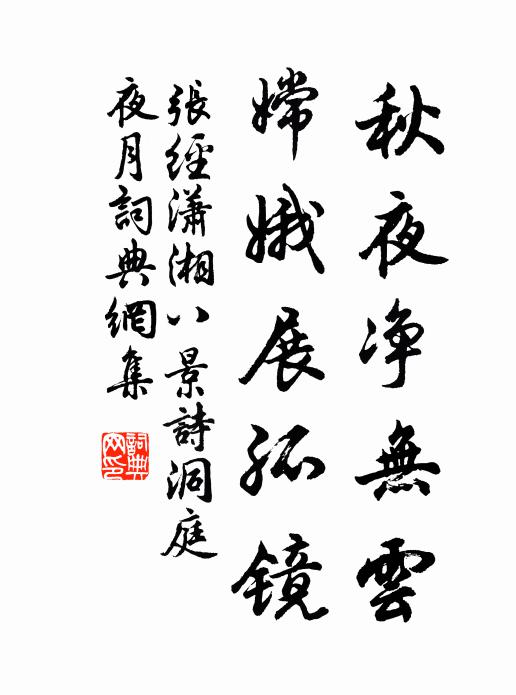 秋夜净無雲
嫦娥展孤镜
張經瀟湘八景詩洞庭
夜月詞典網集
詞典网印